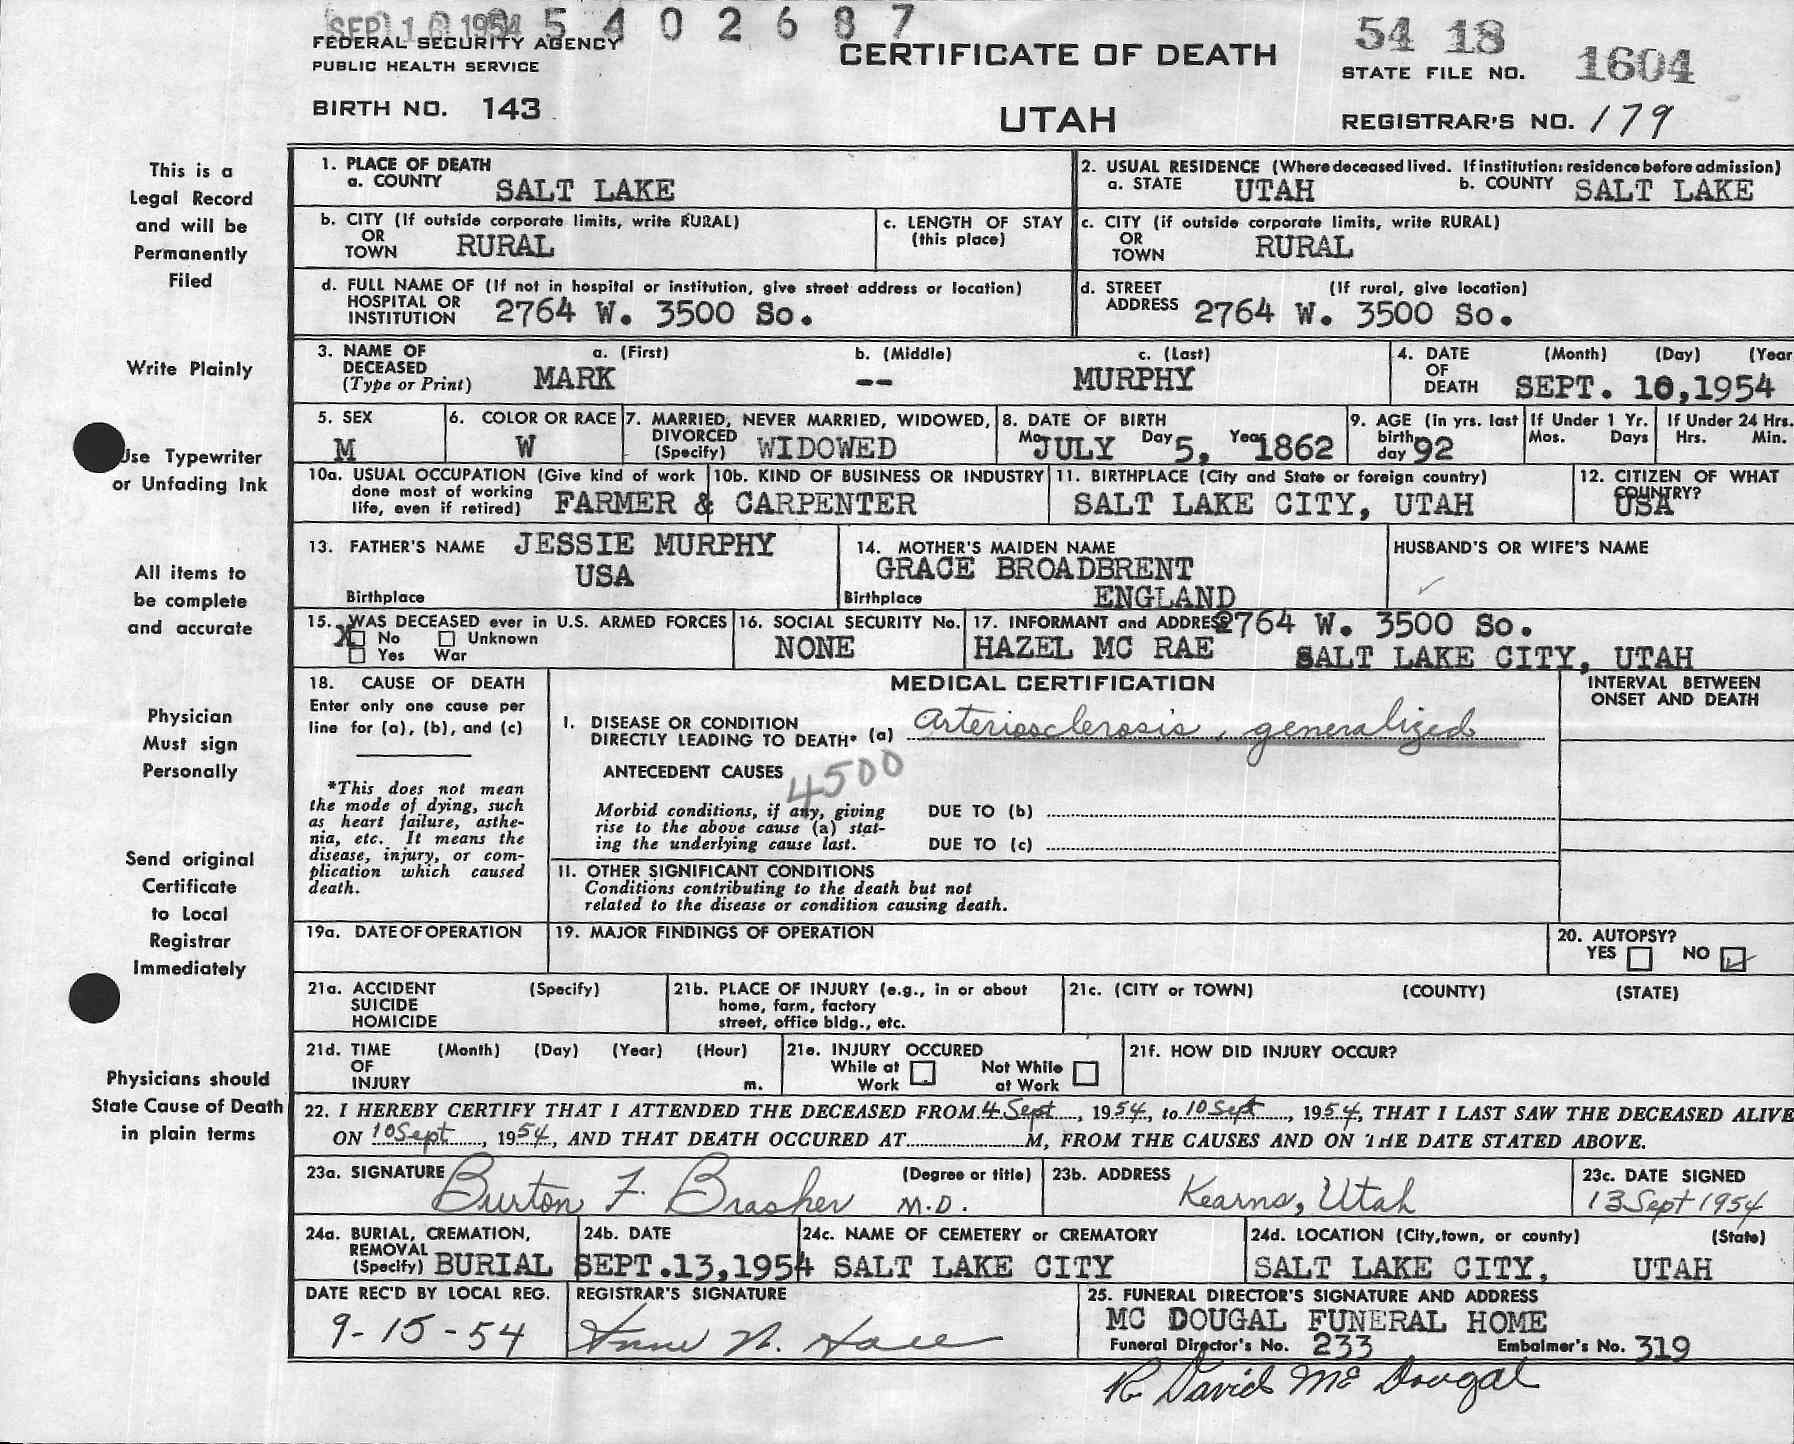 SEP 16 1954 5 4 0 2 6 8 7
FEDERAL SECURITY AGENCY
PUBLIC HEALTH SERVICE
BIRTH NO. 143
CERTIFICATE OF DEATH
UTAH
54 18
STATE FILE NO. 1604
REGISTRAR'S NO. 179
This is a
Legal Record
and will be
Permanently
Filed
Write Plainly
Use Typewriter
or Unfading Ink
All items to
be complete
and accurate
Physician
Must sign
Personally
Send original
Certificate
to Local
Registrar
Immediately
Physicians should
State Cause of Death
in plain terms
1. PLACE OF DEATH
a. COUNTY SALT LAKE
2. USUAL RESIDENCE (Where deceased lived. If institution: residence before admission)
a. STATE UTAH b. COUNTY SALT LAKE
b. CITY (If outside corporate limits, write RURAL)
OR
TOWN RURAL
c. LENGTH OF STAY
(this place)
c. CITY (if outside corporate limits, write RURAL)
OR
TOWN RURAL
d. FULL NAME OF (If not in hospital or institution, give street address or location)
HOSPITAL OR
INSTITUTION 2764 W. 3500 So.
d. STREET (If rural, give location)
ADDRESS 2764 W. 3500 So.
3. NAME OF a. (First) b. (Middle) c. (Last)
DECEASED
(Type or Print) MARK -- MURPHY
4. DATE (Month) (Day) (Year
OF
DEATH SEPT. 10,1954
5. SEX
M
6. COLOR OR RACE
W
7. MARRIED, NEVER MARRIED, WIDOWED,
DIVORCED
(Specify) WIDOWED
8. DATE OF BIRTH
Mo JULY Day 5, Year 1862
9. AGE (in yrs. last
birth
day 92
If Under 1 Yr.
Mos. Days
If Under 24 Hrs.
Hrs. Min.
10a. USUAL OCCUPATION (Give kind of work
done most of working
life, even if retired) FARMER & CARPENTER
10b. KIND OF BUSINESS OR INDUSTRY
11. BIRTHPLACE (City and State or foreign country)
SALT LAKE CITY, UTAH
12. CITIZEN OF WHAT
COUNTRY?
USA
13. FATHER'S NAME JESSIE MURPHY
USA
Birthplace
14. MOTHER'S MAIDEN NAME
GRACE BROADBRENT
Birthplace ENGLAND
HUSBAND'S OR WIFE'S NAME
15. WAS DECEASED ever in U.S. ARMED FORCES
X No Unknown
Yes War
16. SOCIAL SECURITY No.
NONE
17. INFORMANT and ADDRESS 2764 W. 3500 So.
HAZEL MC RAE SALT LAKE CITY, UTAH
18. CAUSE OF DEATH
Enter only one cause per
line for (a), (b), and (c)
*This does not mean
the mode of dying, such
as heart failure, asthe-
nia, etc. It means the
disease, injury, or com-
plication which caused
death.
MEDICAL CERTIFICATION
INTERVAL BETWEEN
ONSET AND DEATH
I. DISEASE OR CONDITION
DIRECTLY LEADING TO DEATH* (a) Arteriosclerosis, generalized
ANTECEDENT CAUSES 4500
Morbid conditions, if any, giving
rise to the above cause (a) stat-
ing the underlying cause last.
DUE TO (b)
DUE TO (c)
II. OTHER SIGNIFICANT CONDITIONS
Conditions contributing to the death but not
related to the disease or condition causing death.
19a. DATE OF OPERATION
19. MAJOR FINDINGS OF OPERATION
20. AUTOPSY?
YES NO ✓
21a. ACCIDENT (Specify)
SUICIDE
HOMICIDE
21b. PLACE OF INJURY (e.g., in or about
home, farm, factory
street, office bldg., etc.
21c. (CITY or TOWN) (COUNTY) (STATE)
21d. TIME (Month) (Day) (Year) (Hour)
OF
INJURY m.
21e. INJURY OCCURED
While at Work Not While at Work
21f. HOW DID INJURY OCCUR?
22. I HEREBY CERTIFY THAT I ATTENDED THE DECEASED FROM 4 Sept, 1954, to 10 Sept, 1954, THAT I LAST SAW THE DECEASED ALIVE
ON 10 Sept, 1954, AND THAT DEATH OCCURED AT M, FROM THE CAUSES AND ON THE DATE STATED ABOVE.
23a. SIGNATURE (Degree or title)
Burton F. Brasher M.D.
23b. ADDRESS
Kearns, Utah
23c. DATE SIGNED
13 Sept 1954
24a. BURIAL, CREMATION,
REMOVAL
(Specify) BURIAL
24b. DATE
SEPT.13,1954
24c. NAME OF CEMETERY or CREMATORY
SALT LAKE CITY
24d. LOCATION (City,town, or county) (State)
SALT LAKE CITY, UTAH
DATE REC'D BY LOCAL REG.
9-15-54
REGISTRAR'S SIGNATURE
25. FUNERAL DIRECTOR'S SIGNATURE AND ADDRESS
MC DOUGAL FUNERAL HOME
Funeral Director's No. 233 Embalmer's No. 319
R David Mc Dougal